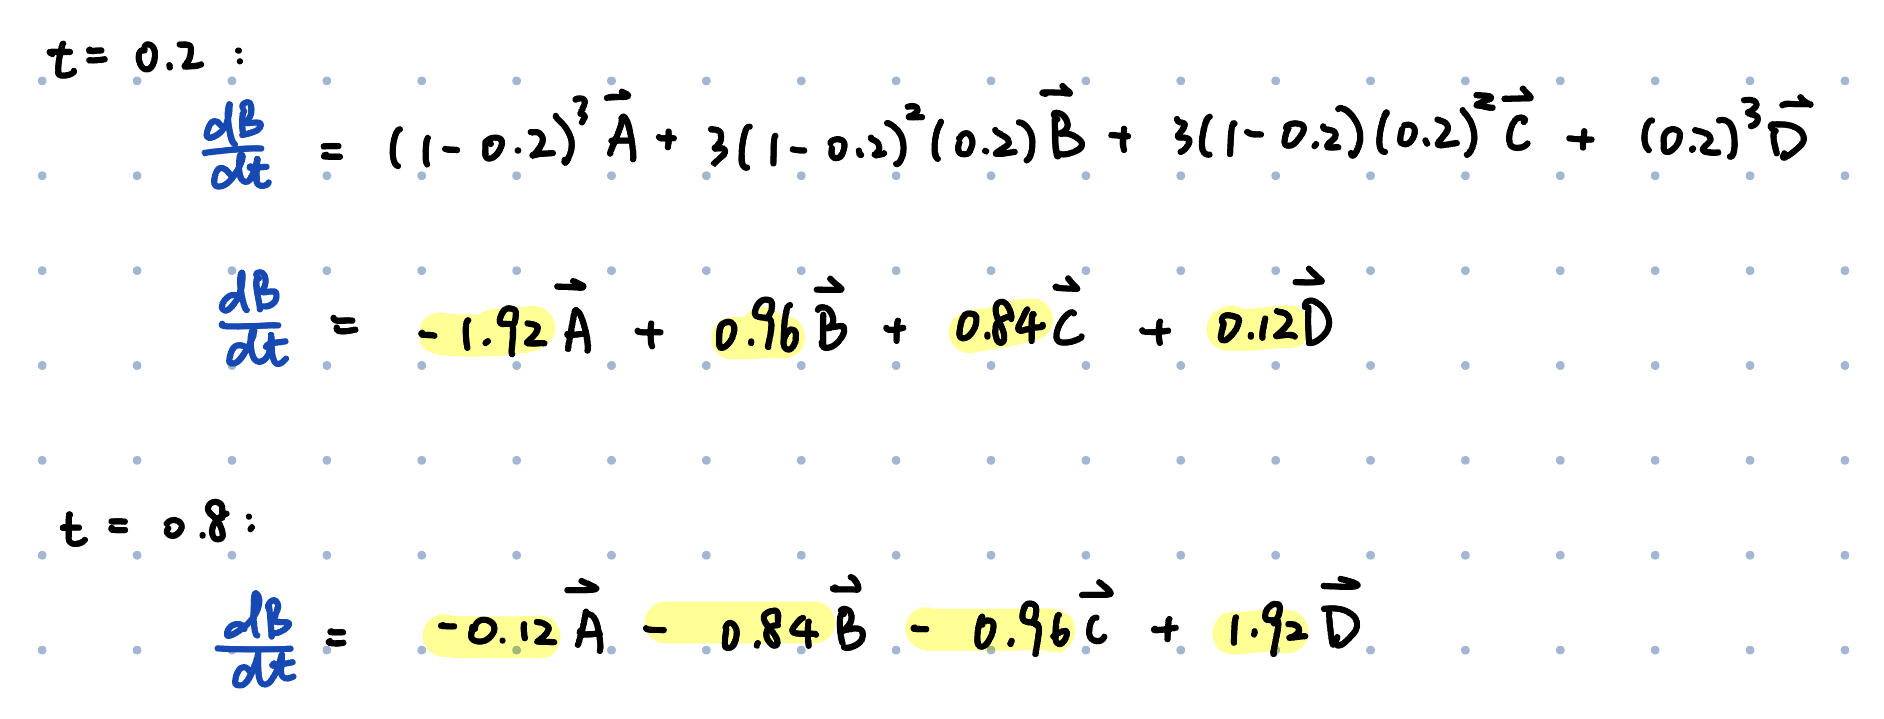 t = 0.2 :
dB/dt = (1 - 0.2)³ A⃗ + 3(1 - 0.2)² (0.2) B⃗ + 3(1 - 0.2)(0.2)² C⃗ + (0.2)³ D⃗
dB/dt = -1.92 A⃗ + 0.96 B⃗ + 0.84 C⃗ + 0.12 D⃗
t = 0.8 :
dB/dt = -0.12 A⃗ - 0.84 B⃗ - 0.96 C⃗ + 1.92 D⃗